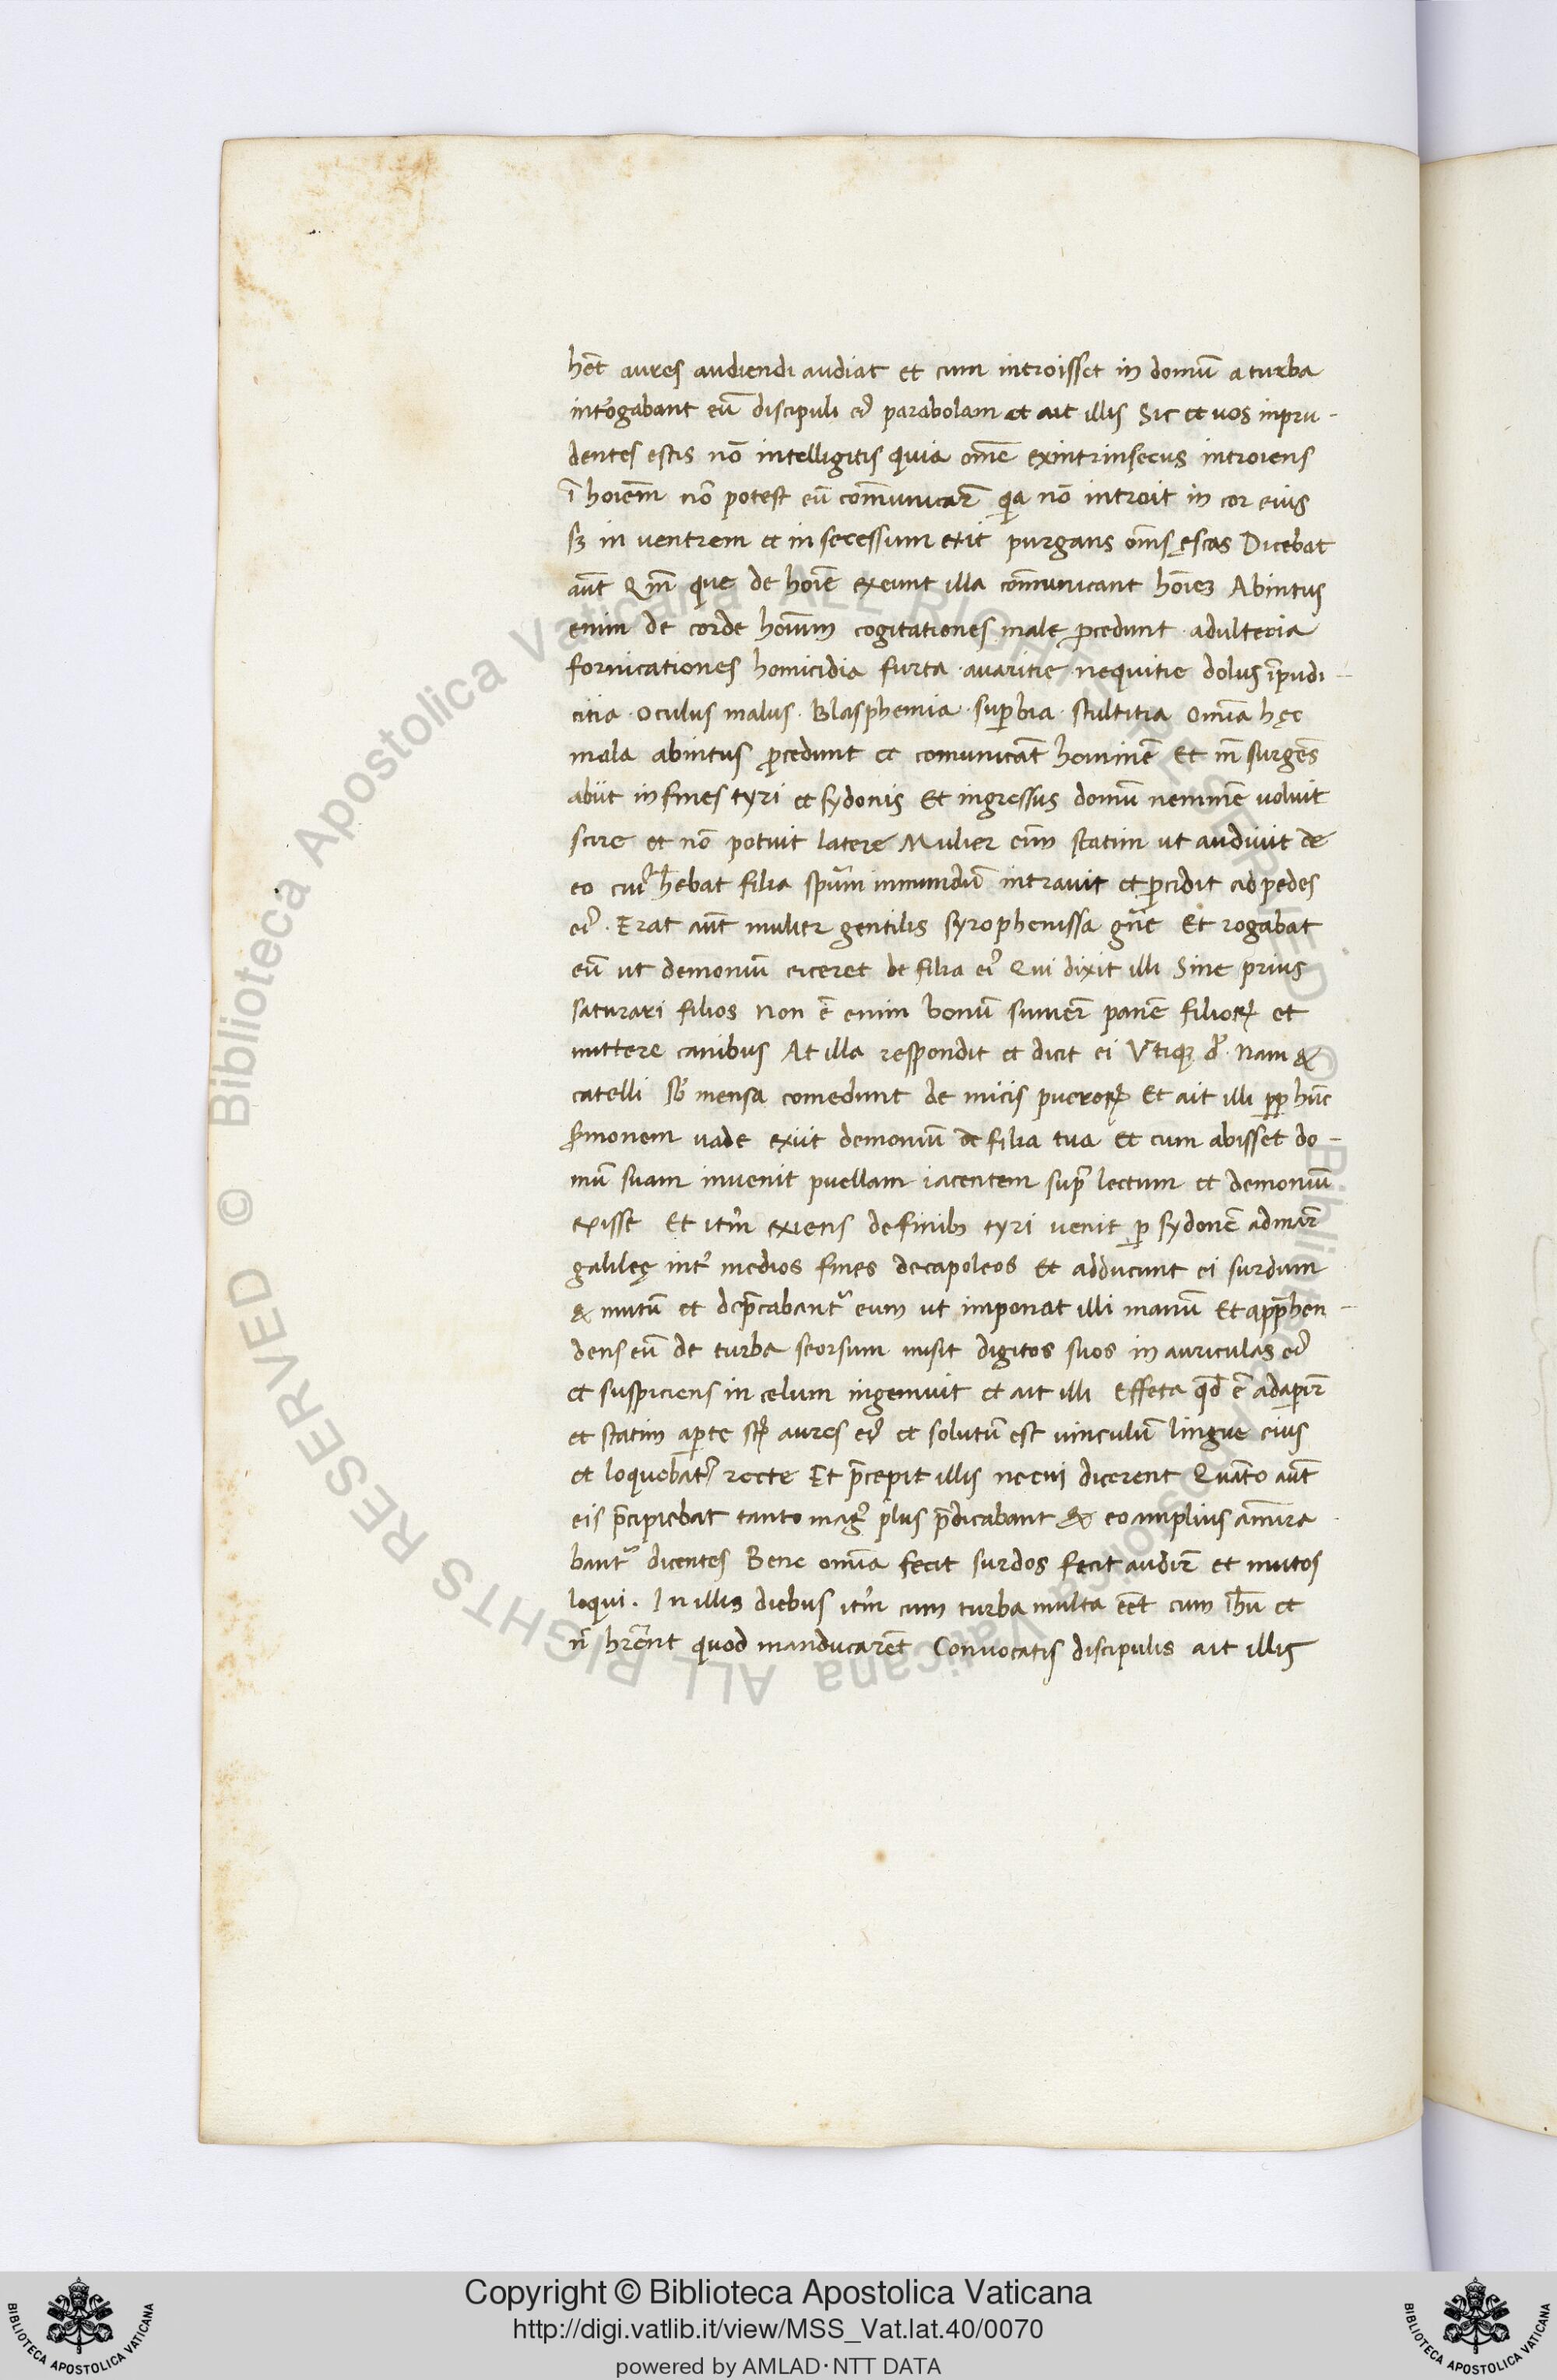 hēt aures audiendi audiat et cum introisset in domū a turba
intͬogabant eū discipuli eiꝰ parabolam et ait illis Sic et vos inpru-
dentes estis nō intelligitis quia om̄e exintrinsecus introiens
ī hoiem̄ nō potest eū com̄unicar̄ qia nō introit in cor eius
sꝫ in ventrem et in secessum exit purgans om̄s escas Dicebat
aūt Qm̄ que de hoīe exeunt illa com̄unicant hoīeꝫ Abintus
enim de corde hoīum cogitationes male ꝓcedunt · adulteria
fornicationes homicidia furta · avaritie · nequitie dolus īpudi-
citia · oculus malus · Blasphemia · suꝑbia · stultitia om̄ia hęc
mala abintus ꝓcedunt et comunicāt hominē Et īn surgēs
abiit in fines tyri et sydonis Et ingressus domū neminē voluit
scire et nō potuit latere Mulier eīm statim ut audivit de
eo cuiꝰ hēbat filia spūm inmundū intravit et ꝓcidit ad pedes
eiꝰ · Erat aūt mulier gentilis syrophenissa gn̄e Et rogabat
eū ut demoniū eiceret de filia eiꝰ Qui dixit illi Sine prius
saturari filios Non ē enim bonū sumer̄ panē filioꝝ et
mittere canibus At illa respondit et dicit ei Utiqꝫ d̄ · Nam &
catelli sb̄ mensa comedunt de micis pueroꝝ Et ait illi ꝓp hūc
s̄monem vade exiit demoniū de filia tua Et cum abisset do-
mū suam invenit puellam iacentem supͣ lectum et demoniū
exisse Et itm̄ exiens de finibꝫ tyri venit ꝑ sydonē ad mar̄
galileę intͬ medios fines decapoleos Et adducunt ei surdum
& mutū et dep̄cabantᷣ eum ut imponat illi manū Et app̄hen-
dens eū de turba seorsum misit digitos suos in auriculas eiꝰ
et suspiciens in celum ingemuit et ait illi Effeta qd̄ ē adaꝑir̄
et statim aꝑte st̄ aures eiꝰ et solutū est vinculū lingue eius
et loquebatᷣ recte Et p̄cepit illis ne cui dicerent Quāto aūt
eis p̄cipiebat tanto magꝭ plus p̄dicabant & eo amplius am̄ira
bantᷣ dicentes Bene om̄ia fecit surdos fecit audir̄ et mutos
loqui · In illis diebus itm̄ cum turba multa eēt cum ih̄u et
n̄ hr̄ent quod manducarēt Convocatis discipulis ait illis
Copyright © Biblioteca Apostolica Vaticana
http://digi.vatlib.it/view/MSS_Vat.lat.40/0070
powered by AMLAD·NTT DATA
BIBLIOTECA APOSTOLICA VATICANA
BIBLIOTECA APOSTOLICA VATICANA